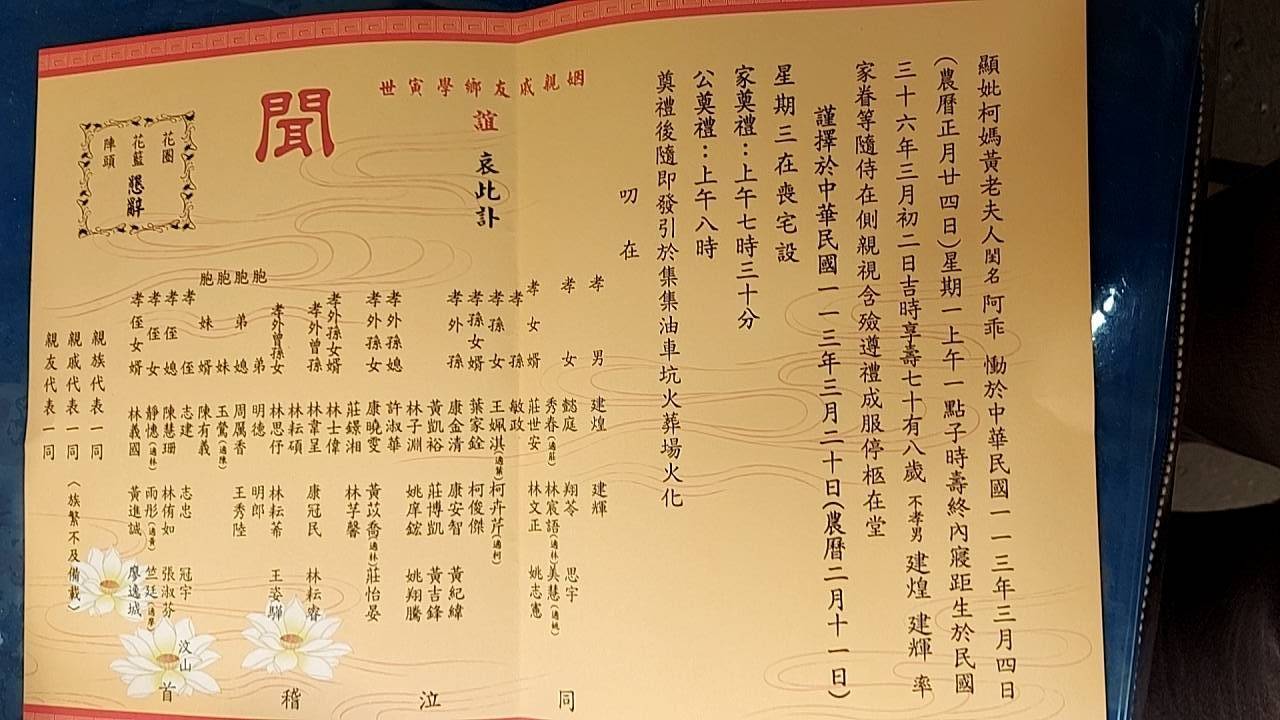 顯妣柯媽黃老夫人閨名 阿乖 慟於中華民國一一三年三月四日
(農曆正月廿四日)星期一上午一點子時壽終內寢距生於民國
三十六年三月初二日吉時享壽七十有八歲 不孝男 建煌 建輝 率
家眷等隨侍在側親視含殮遵禮成服停柩在堂
謹擇於中華民國一一三年三月二十日(農曆二月十一日)
星期三在喪宅設
家奠禮:上午七時三十分
公奠禮:上午八時
奠禮後隨即發引於集集油車坑火葬場火化
叨在
姻親戚友鄉學寅世
誼
哀此訃
聞
孝男 建煌 建輝
孝女 懿庭 翔苓 思宇
秀春(適莊) 林宸語(適林) 美慧(適姚)
孝女婿 莊世安 林文正 姚志憲
孝孫 敏政
孝孫女 王姵淇(適葉) 柯卉芹(適柯)
孝孫女婿 葉家銓 柯俊傑
孝外孫 康金清 康安智 黃紀緯
黃凱裕 莊博凱 黃吉鋒
林子淵 姚庠鋐 姚翔騰
孝外孫媳 許淑華
孝外孫女 康曉雯 黃苡喬(適林) 莊怡晏
莊鐛湘 林芓馨
孝外孫女婿 林士偉
孝外曾孫 林韋呈 康冠民 林耘睿
林耘碩
孝外曾孫女 林思伃 林耘莃 王姿驊
胞弟 明德 明郎
胞弟媳 周厲香 王秀陸
胞妹 玉鶯(適陳)
胞妹婿 陳有義
孝侄 志建 志忠 冠宇 汶山
孝侄媳 陳慧珊 林侑如 張淑芬
孝侄女 靜愧(適林) 雨彤(適黃) 竺廷(適廖)
孝侄女婿 林義國 黃進誠 廖逸城
親族代表一同
親戚代表一同 (族繁不及備載)
親友代表一同
同泣稽首
花圈
花籃 懇辭
陣頭